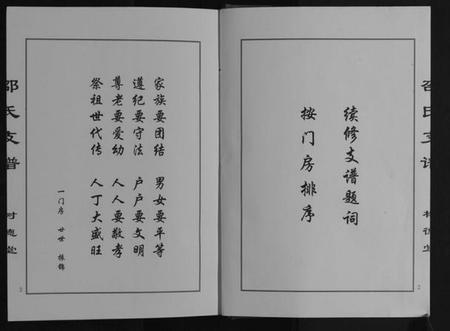 续修支谱题词
按门房排序
2
邵氏支谱
家族要团结 男女要平等
遵纪要守法 户户要文明
尊老要爱幼 人人要敬孝
祭祖世代传 人丁大盛旺
一门房 廿世 振锦
邵氏支谱
3